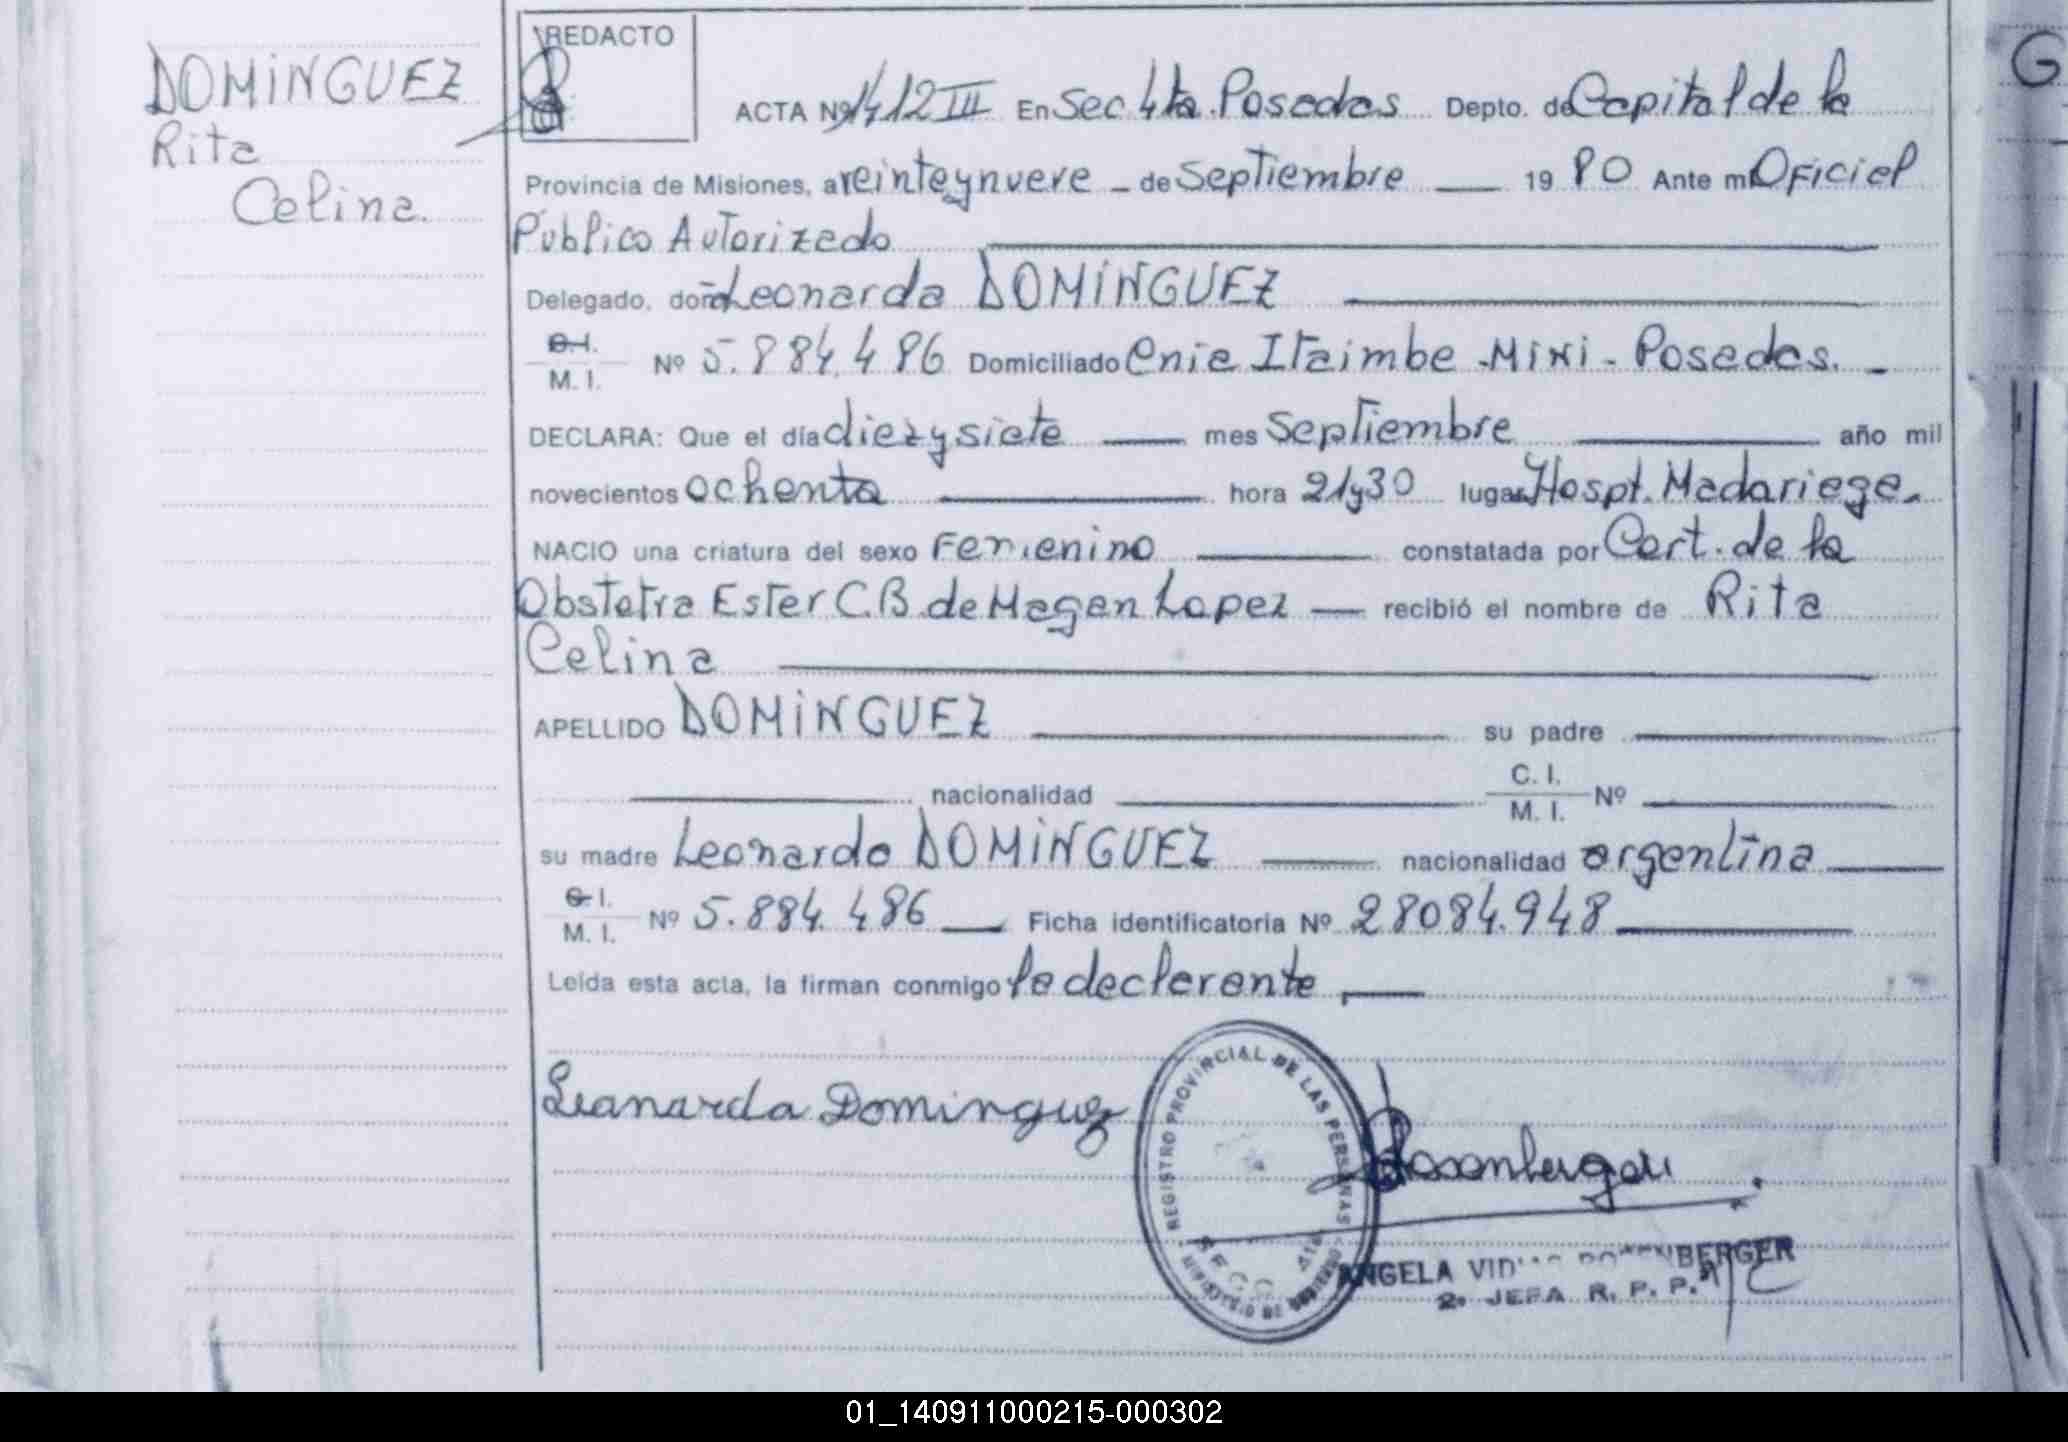 DOMINGUEZ
Rita
Celina.
REDACTO
ACTA Nº 1412 III En Sec 4ta. Posadas Depto. de Capital de la
Provincia de Misiones, a veinteynueve - de Septiembre 19 80 Ante mi Oficial
Público Autorizado
Delegado, doña Leonarda DOMINGUEZ
C. I.
M. I. Nº 5.884.486 Domiciliado Cnia Itaimbe - Mini - Posadas. -
DECLARA: Que el día diezysiete mes Septiembre año mil
novecientos ochenta hora 21y30 lugar Hospt. Madariaga.
NACIO una criatura del sexo Femenino constatada por Cert. de la
Obstetra Ester C.B. de Magan Lopez recibió el nombre de Rita
Celina
APELLIDO DOMINGUEZ su padre
nacionalidad C. I.
M. I. Nº
su madre Leonarda DOMINGUEZ nacionalidad argentina
C. I.
M. I. Nº 5.884.486 Ficha identificatoria Nº 28084.948
Leída esta acta, la firman conmigo la declarante
Leanarda Dominguez
REGISTRO PROVINCIAL DE LAS PERSONAS
MINISTERIO DE GOBIERNO
SECC. 4ta
ANGELA BERGER
2º JEFA R. P. P.
G
01_140911000215-000302